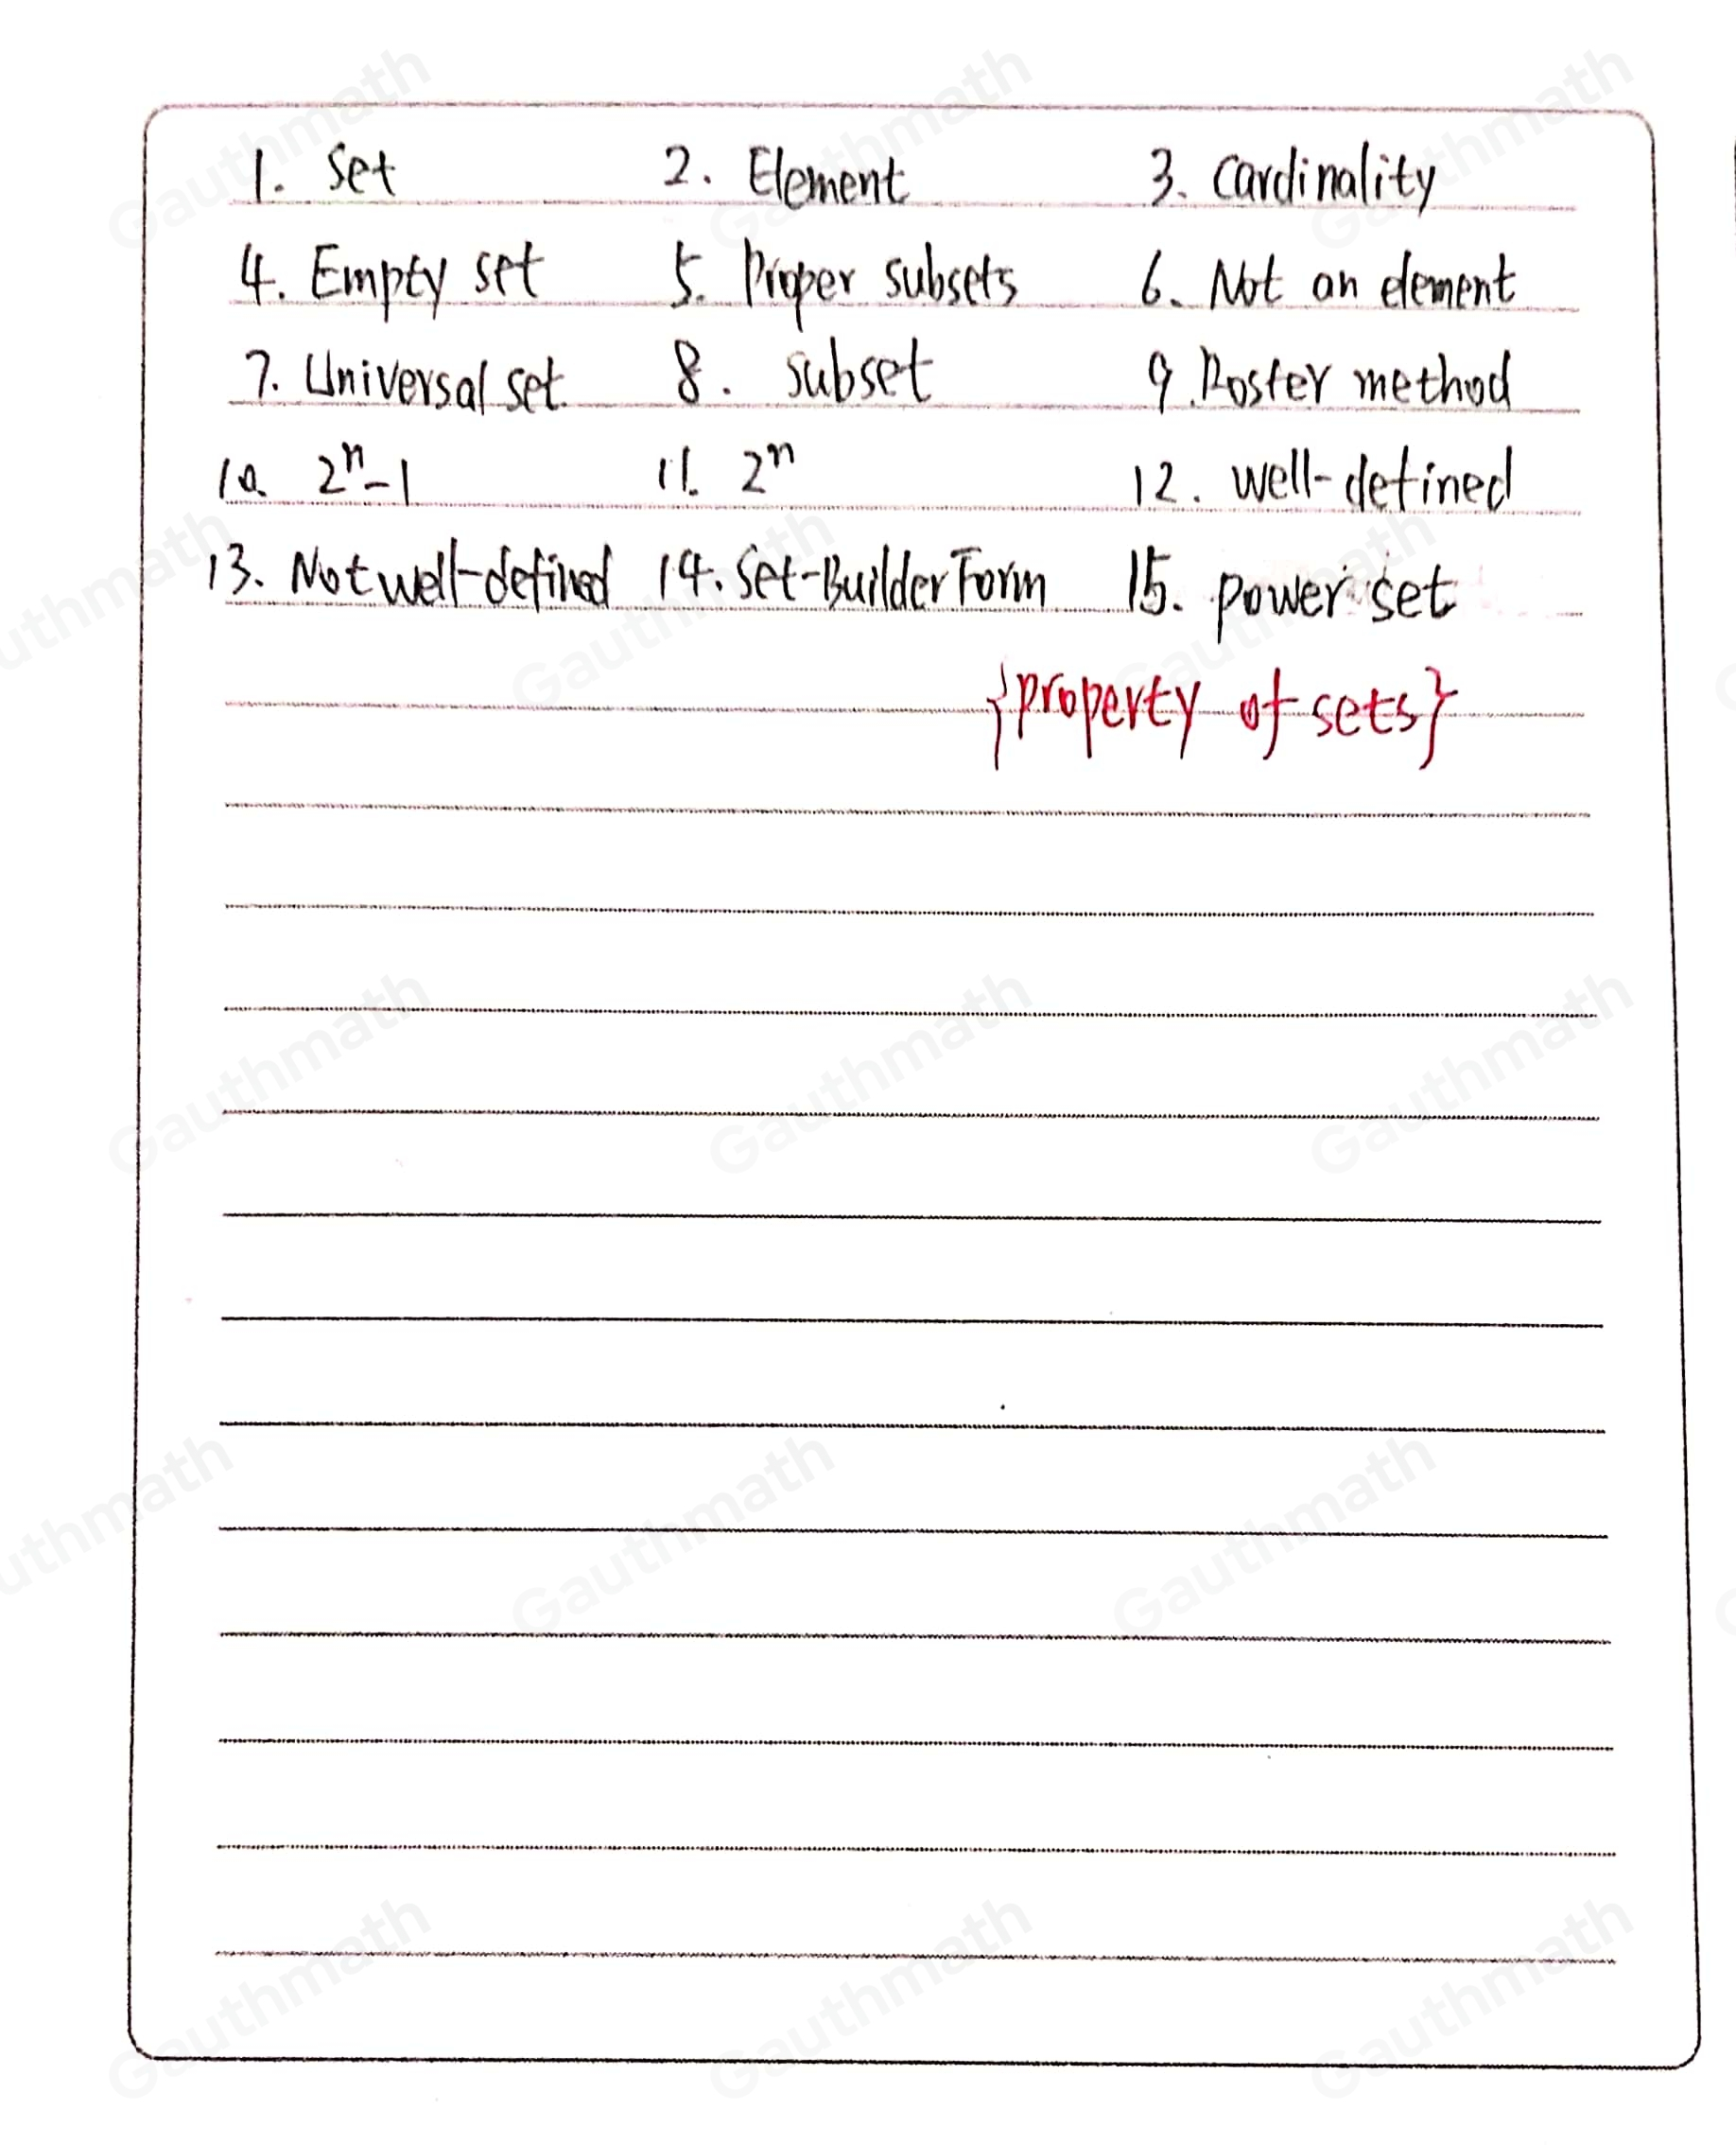 1. Set 2. Element 3. Cardinality
4. Empty set 5. Proper subsets 6. Not an element
7. Universal set 8. subset 9. Roster method
10. 2ⁿ-1 11. 2ⁿ 12. well-defined
13. Not well-defined 14. Set-Builder Form 15. power set
{property of sets}
Gauthmath